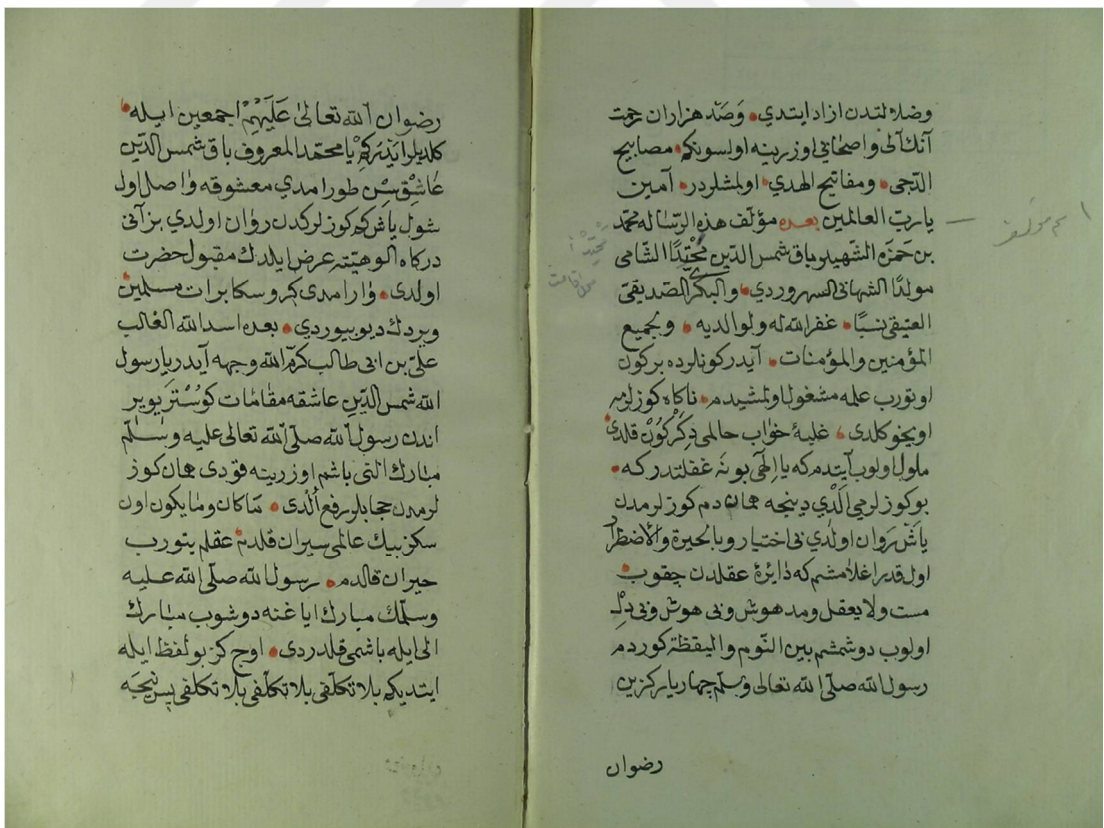 وضلالتدن ازاد ايتدي وصد هزاران رحمت
آنك آلى و اصحابى اوزرينه اولسونكه مصابيح
الدجى ومفاتيح الهدي اولمشلردر آمين
يا رب العالمين بعده مؤلف هذه الرساله محمد
بن حمزه الشهير باق شمس الدين محتدا الشامى
مولدا الشهابى السهروردي والبكري الصديقى
العتيقى نسبا غفر الله له ولوالديه ولجميع
المؤمنين والمؤمنات آيدر كونلرده بركون
اوتورب علمه مشغول اولمشيدم ناكاه كوزلرمه
اويخو كلدى غلبهٔ خواب حالمى دكركون قلدى
ملول اولوب آيتدم كه يا الهى بو نه غفلتدركه
بو كوزلرمى آلدي دينجه همان دم كوزلرمدن
ياش روان اولدي بى اختيار وبالحيرة والاضطرار
اول قدر اغلامشم كه دايرهٔ عقلدن چقوب
مست ولا يعقل ومدهوش وبى هوش وبى دل
اولوب دوشمشم بين النوم واليقظة كوردم
رسول الله صلى الله تعالى وسلم چهار يار كزين
رضوان
رضوان الله تعالى عَلَيْهِمْ اجمعين ايله
كلديلر آيدركه يا محمد المعروف باق شمس الدين
عاشق سن طورامدي معشوقه واصل اول
شول ياش كه كوزلركدن روان اولدي بز آنى
دركاه الوهيتنه عرض ايلدك مقبول حضرت
اولدى وارامدى كيرو سكا برات مسلمين
ويردك ديو بيوردي بعده اسد الله الغالب
على بن ابى طالب كرم الله وجهه آيدر يا رسول
الله شمس الدين عاشقه مقامات كوستريوير
اندن رسول الله صلى الله تعالى عليه وسلم
مبارك الني باشم اوزرينه قودى همان كوز
لرمدن حجابلر رفع آلدى ما كان وما يكون اون
سكز بيك عالمى سيران قلدم عقلم يتورب
حيران قالدم رسول الله صلى الله عليه
وسلمك مبارك اياغنه دوشوب مبارك
الى ايله باشمى قلدردى اوچ كز بو لفظ ايله
ايتديكه بلا تكلفى بلا تكلفى بلا تكلفى پس نيجه